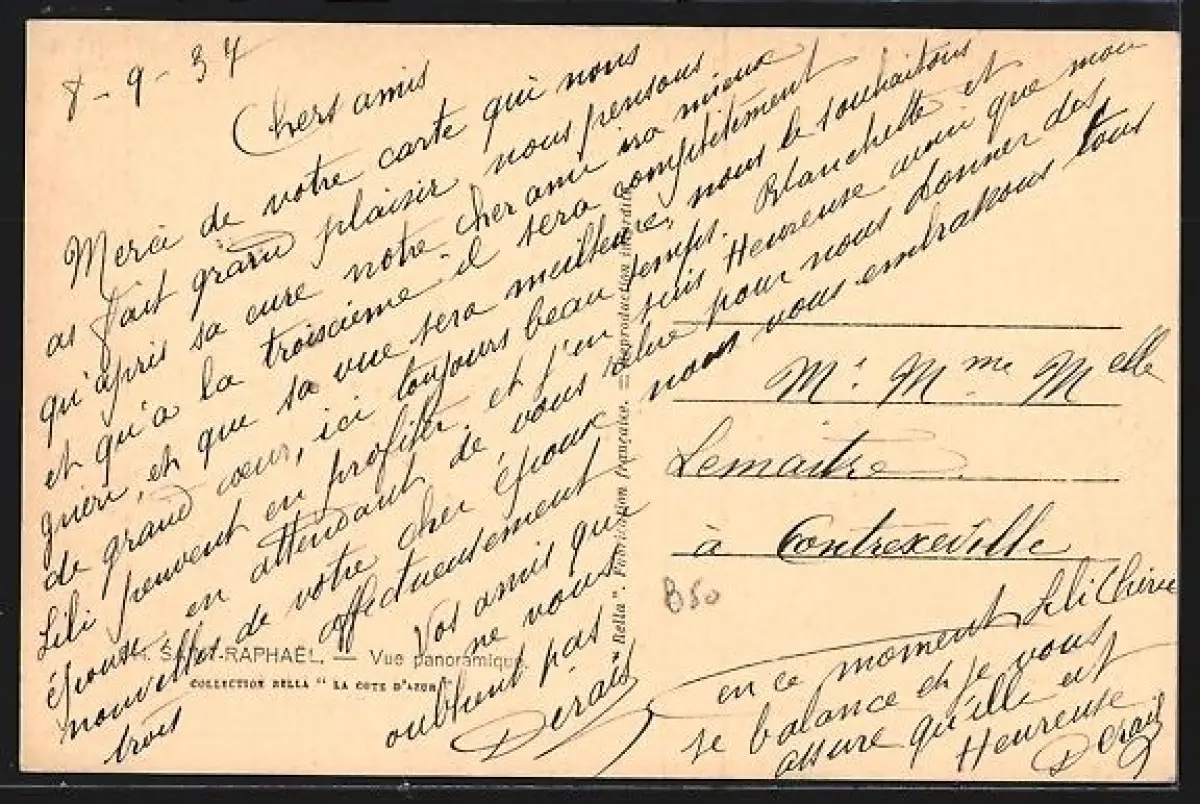 8-9-37
Chers amis
Merci de votre carte qui nous
as fait grand plaisir nous pensons
qu'après sa cure notre cher ami ira mieux
et qu'a la troisième il sera complètement
guéri, et que sa vue sera meilleure, nous le souhaitons
de grand cœur, ici toujours beau temps. Blanchette et
Lili peuvent en profiter et j'en suis Heureuse ainsi que mon
épouse en attendant de vous relire pour nous donner des
nouvelles de votre cher époux nous vous embrassons tous
trois affectueusement
Vos amis qui
ne vous
oublient pas
Derais
SAINT-RAPHAËL. — Vue panoramique.
COLLECTION BELLA "LA COTE D'AZUR"
"Bella". Fabrication française. — Reproduction interdite
Mr. Mme Melle
Lemaitre
à Contrexeville
B50
en ce moment Lili Chérie
se balance et je vous
assure qu'elle est
Heureuse
Derais